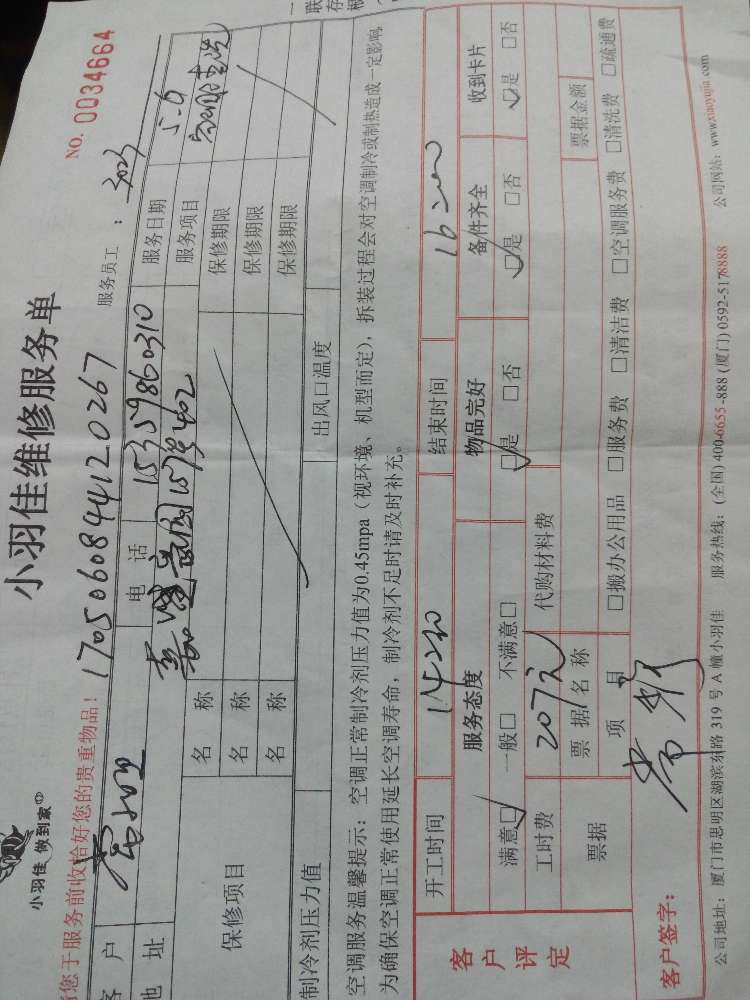 小羽佳 做到家
小羽佳维修服务单
NO. 0034664
一联存根
请您于服务前收拾好您的贵重物品！ 17050608441 20267 服务员工：
客户 电话 15359860310 服务日期 5-9
地址 157号402 服务项目
保修项目 名称 保修期限
名称 保修期限
名称 保修期限
制冷剂压力值 出风口温度
空调服务温馨提示：空调正常制冷剂压力值为0.45mpa（视环境、机型而定），拆装过程会对空调制冷或制热造成一定影响，
为确保空调正常使用延长空调寿命，制冷剂不足时请及时补充。
客户评定
开工时间 结束时间
服务态度 物品完好 备件齐全 收到卡片
满意□ 一般□ 不满意□ □是 □否 □是 □否 □是 □否
工时费 207元 代购材料费
票据 票据名称 票据金额
项目 □搬办公用品 □服务费 □清洁费 □空调服务费 □清洗费 □疏通费
客户签字：
公司地址：厦门市思明区湖滨东路 319 号 A 幢小羽佳 服务热线：(全国) 400-6655-888 (厦门) 0592-5178888 公司网站：www.xiaoyujia.com